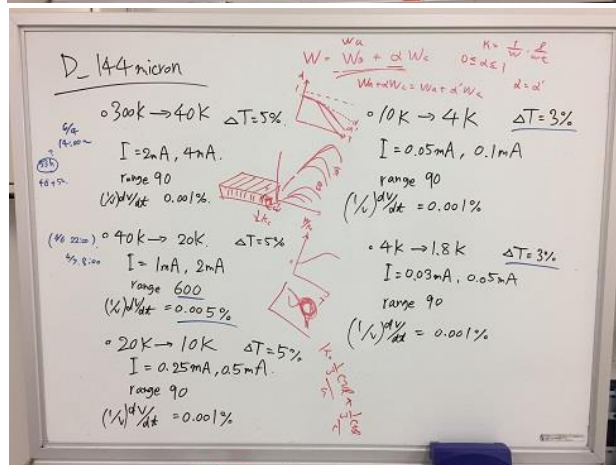 D_144micron
∘300K→40K ΔT=5%
I=2mA, 4mA.
range 90
(1/v)dv/dt 0.001%
∘40K→20K. ΔT=5%
I=1mA, 2mA
range 600
(1/v)dv/dt =0.005%
∘20K→10K ΔT=5%
I=0.25mA, 0.5mA.
range 90
(1/v)dv/dt =0.001%
W = Wa + αWc
0≤α≤1
Wa+αWc=Wa+α'Wc
α=α'
∘10K→4K ΔT=3%
I=0.05mA, 0.1mA
range 90
(1/v)dv/dt =0.001%
∘4K→1.8K ΔT=3%
I=0.03mA, 0.05mA
range 90
(1/v)dv/dt = 0.001%